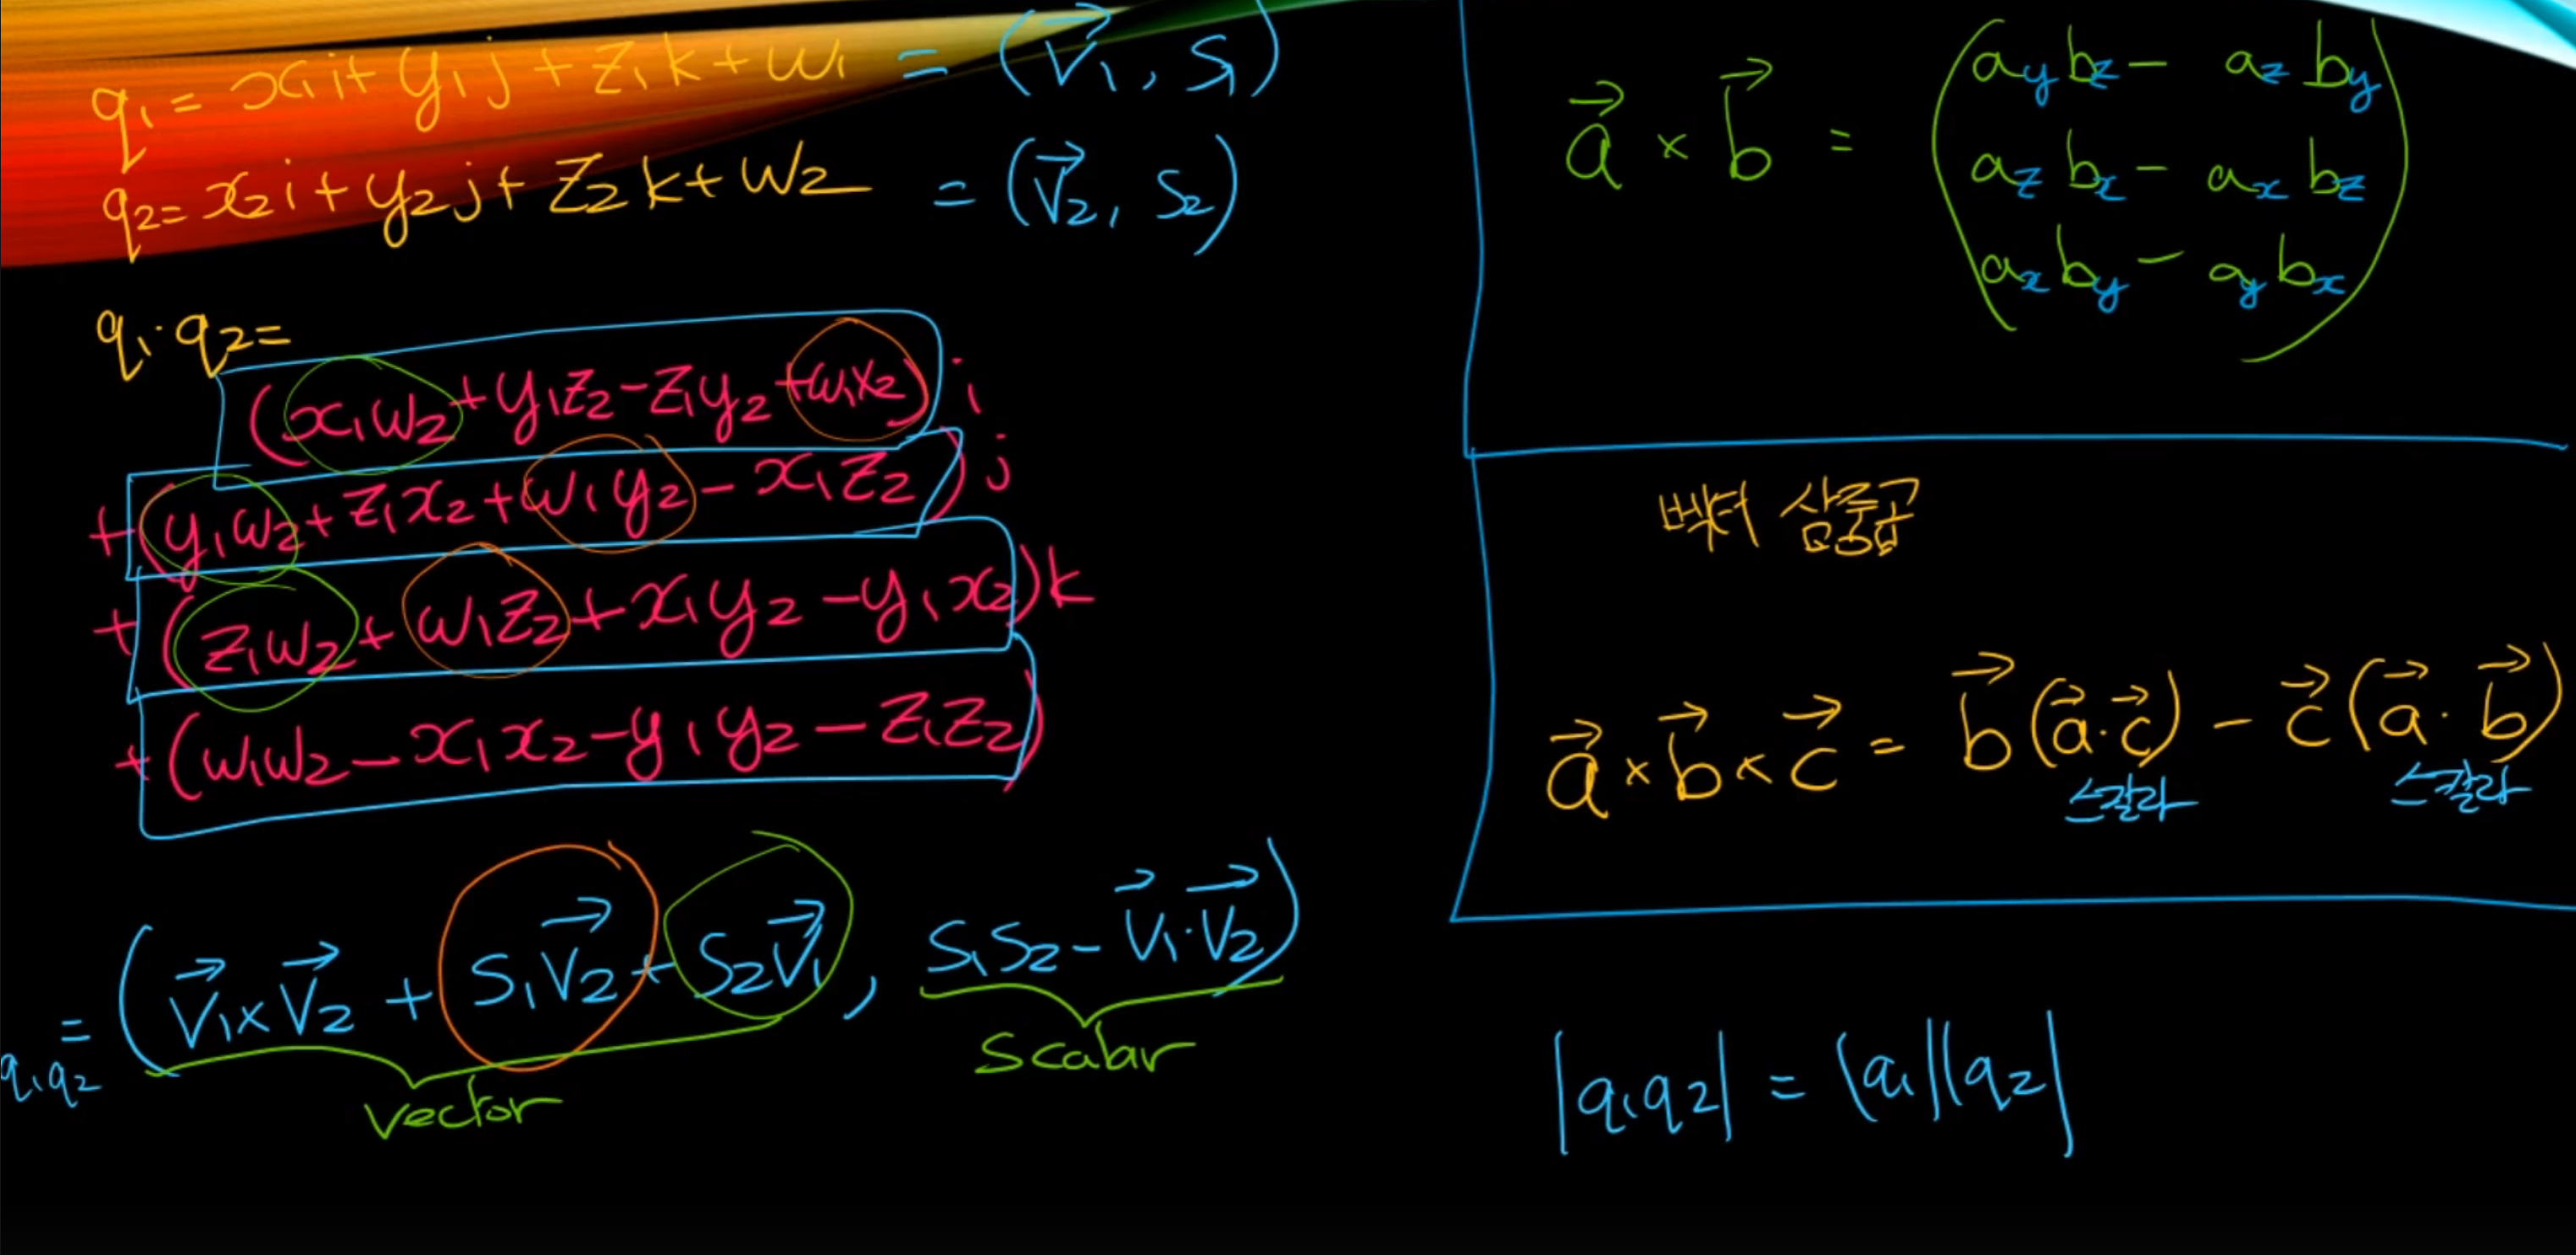 q₁ = x₁i + y₁j + z₁k + w₁ = (v⃗₁, s₁)
q₂ = x₂i + y₂j + z₂k + w₂ = (v⃗₂, s₂)
q₁·q₂ =
(x₁w₂ + y₁z₂ - z₁y₂ + w₁x₂) i
+ (y₁w₂ + z₁x₂ + w₁y₂ - x₁z₂) j
+ (z₁w₂ + w₁z₂ + x₁y₂ - y₁x₂) k
+ (w₁w₂ - x₁x₂ - y₁y₂ - z₁z₂)
q₁q₂ = (v⃗₁ × v⃗₂ + s₁v⃗₂ + s₂v⃗₁, s₁s₂ - v⃗₁·v⃗₂)
vector scalar
a⃗ × b⃗ =
(a_y b_z - a_z b_y
a_z b_x - a_x b_z
a_x b_y - a_y b_x)
벡터 삼중곱
a⃗ × b⃗ × c⃗ = b⃗(a⃗·c⃗) - c⃗(a⃗·b⃗)
스칼라 스칼라
|q₁q₂| = |q₁||q₂|